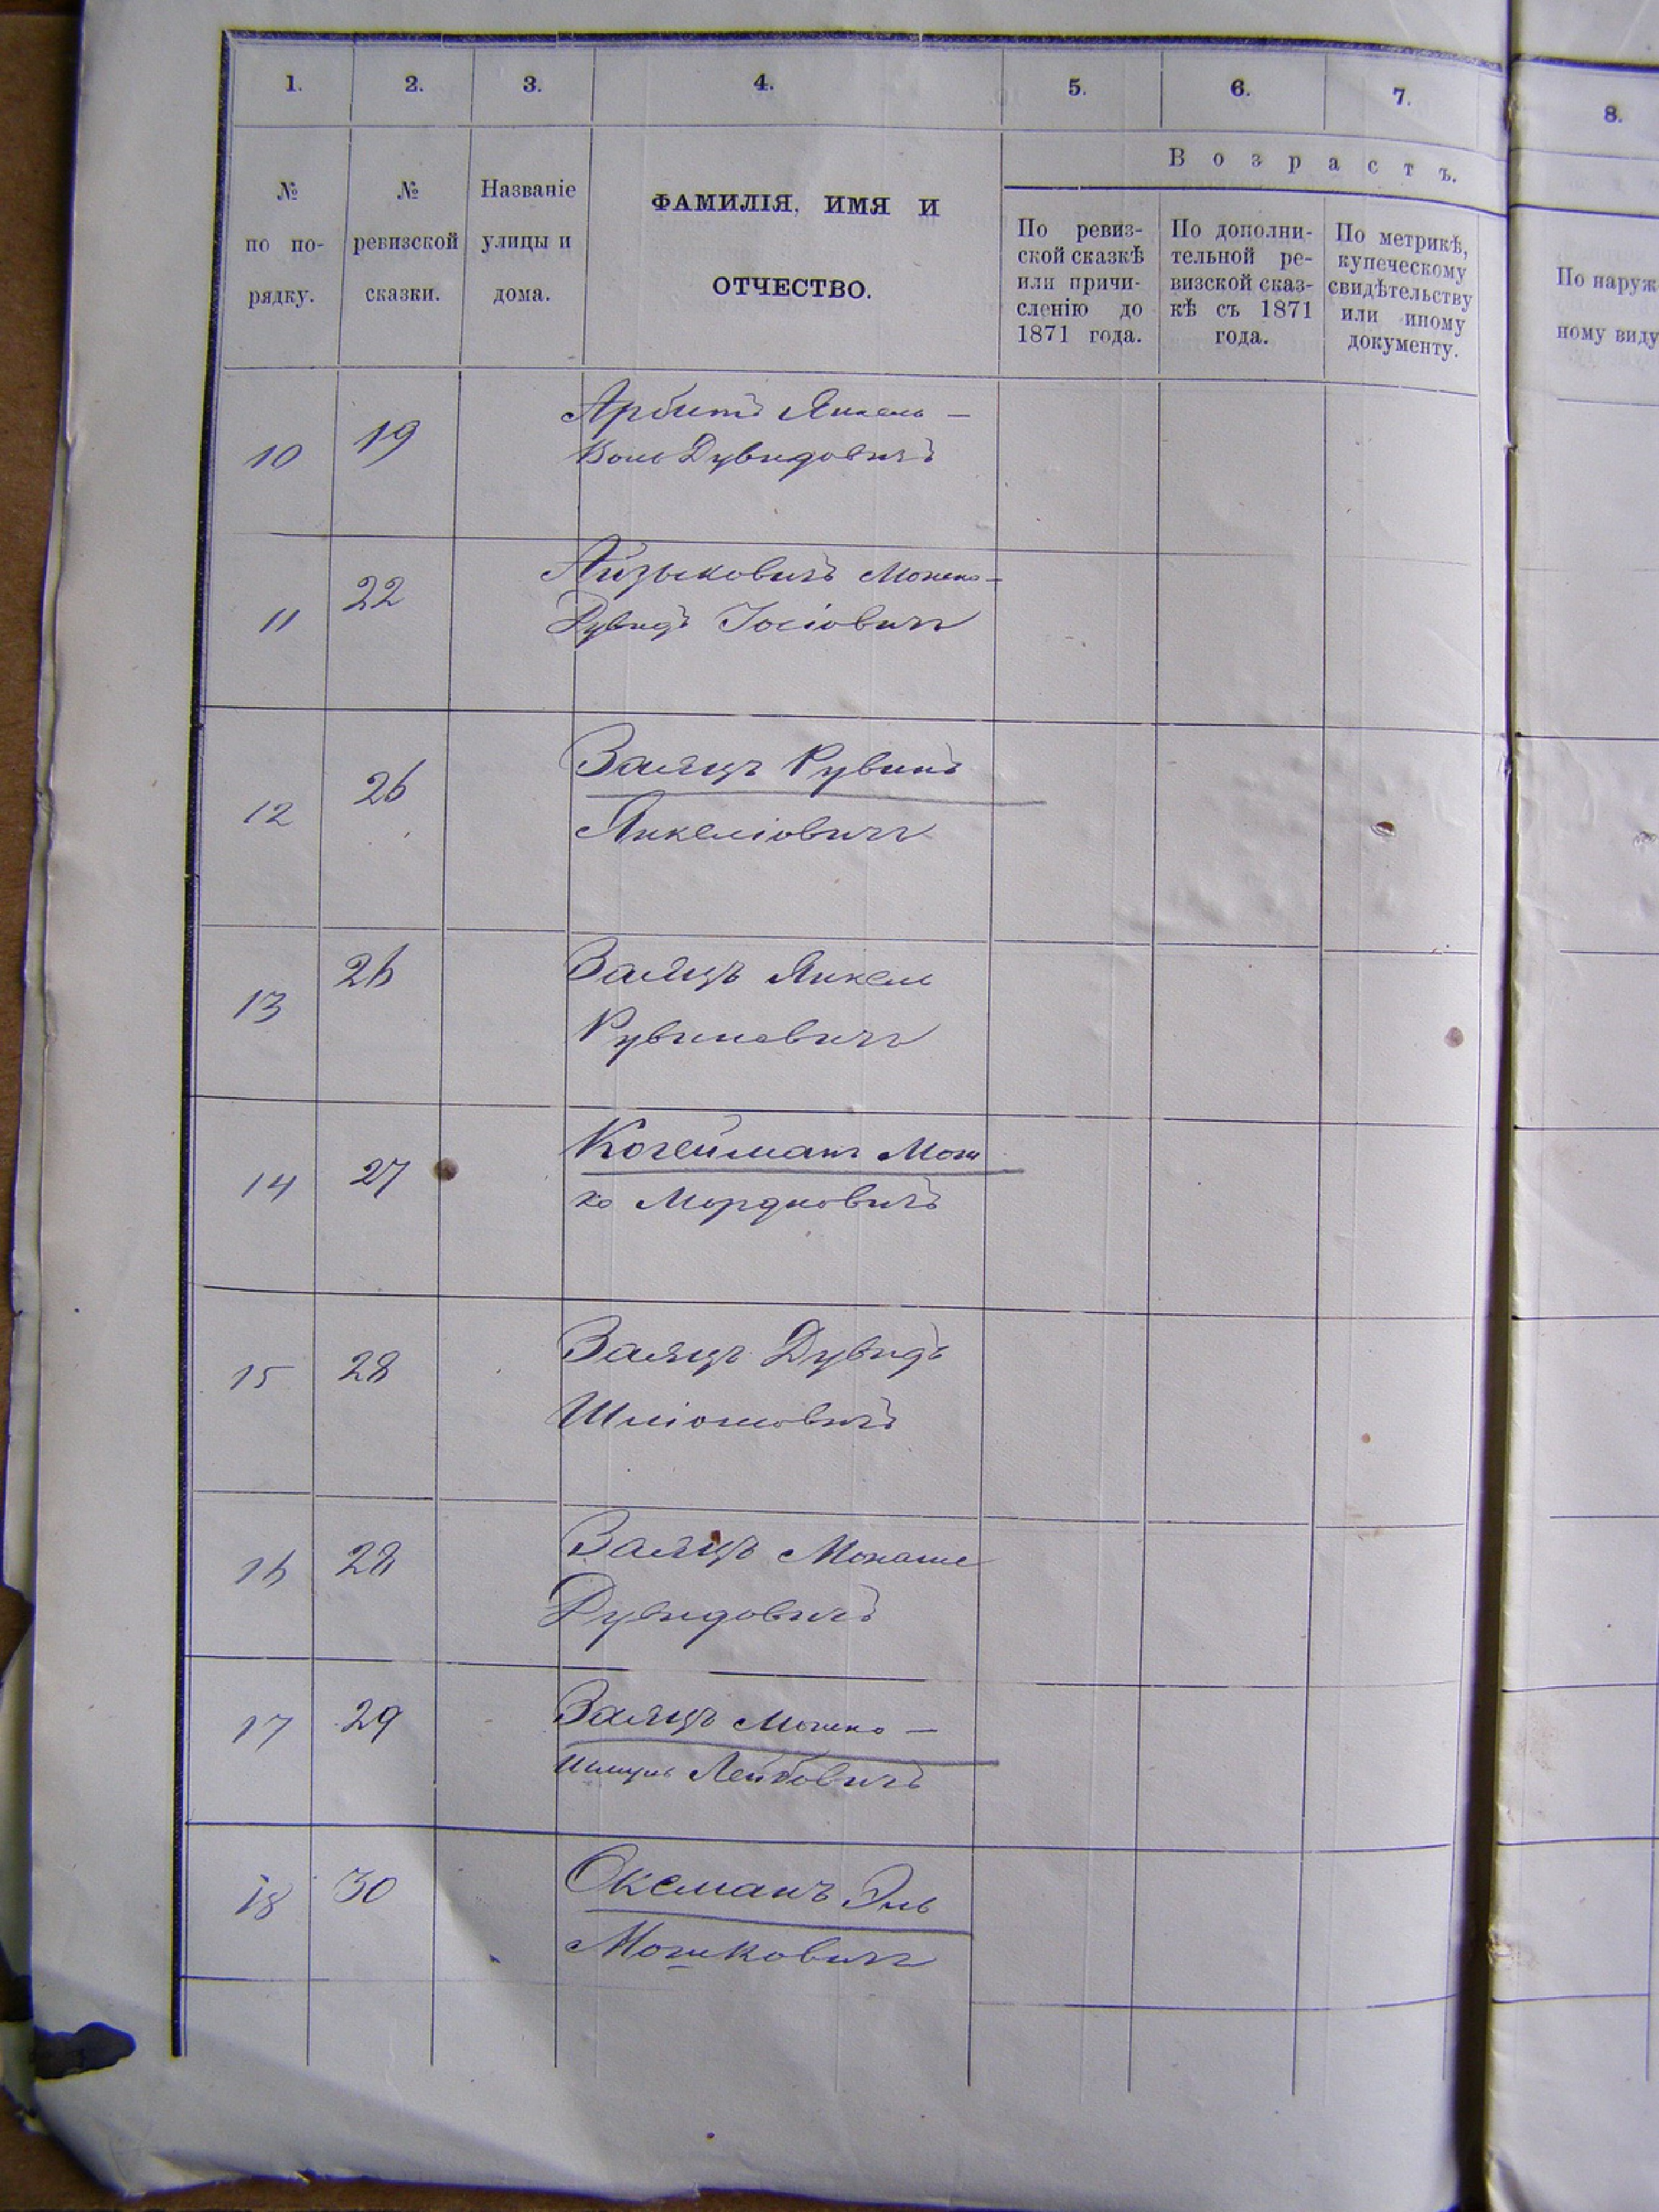 1. 2. 3. 4. 5. 6. 7. 8.
№ по по-рядку.
№ ревизской сказки.
Названіе улицы и дома.
ФАМИЛІЯ, ИМЯ И
ОТЧЕСТВО.
Возрастъ.
По ревиз-
ской сказкѣ
или причи-
сленію до
1871 года.
По дополни-
тельной ре-
визской сказ-
кѣ съ 1871
года.
По метрикѣ,
купеческому
свидѣтельству
или иному
документу.
По наруж
ному виду
10 19 Арбитъ Янкель -
Дувидовичъ
11 22 Айзыковичъ Мошко-
Дувидъ Іосіовичъ
12 26 Заяцъ Рувинъ
Янкеліовичъ
13 26 Заяцъ Янкель
Рувиновичъ
14 27 Когейманъ Мош
ко Мордковичъ
15 28 Заяцъ Дувидъ
Шліомовичъ
16 28 Заяцъ Монаше
Дувидовичъ
17 29 Заяцъ Мошко -
Шмуль Лейбовичъ
18 30 Оксманъ Эль
Мошковичъ